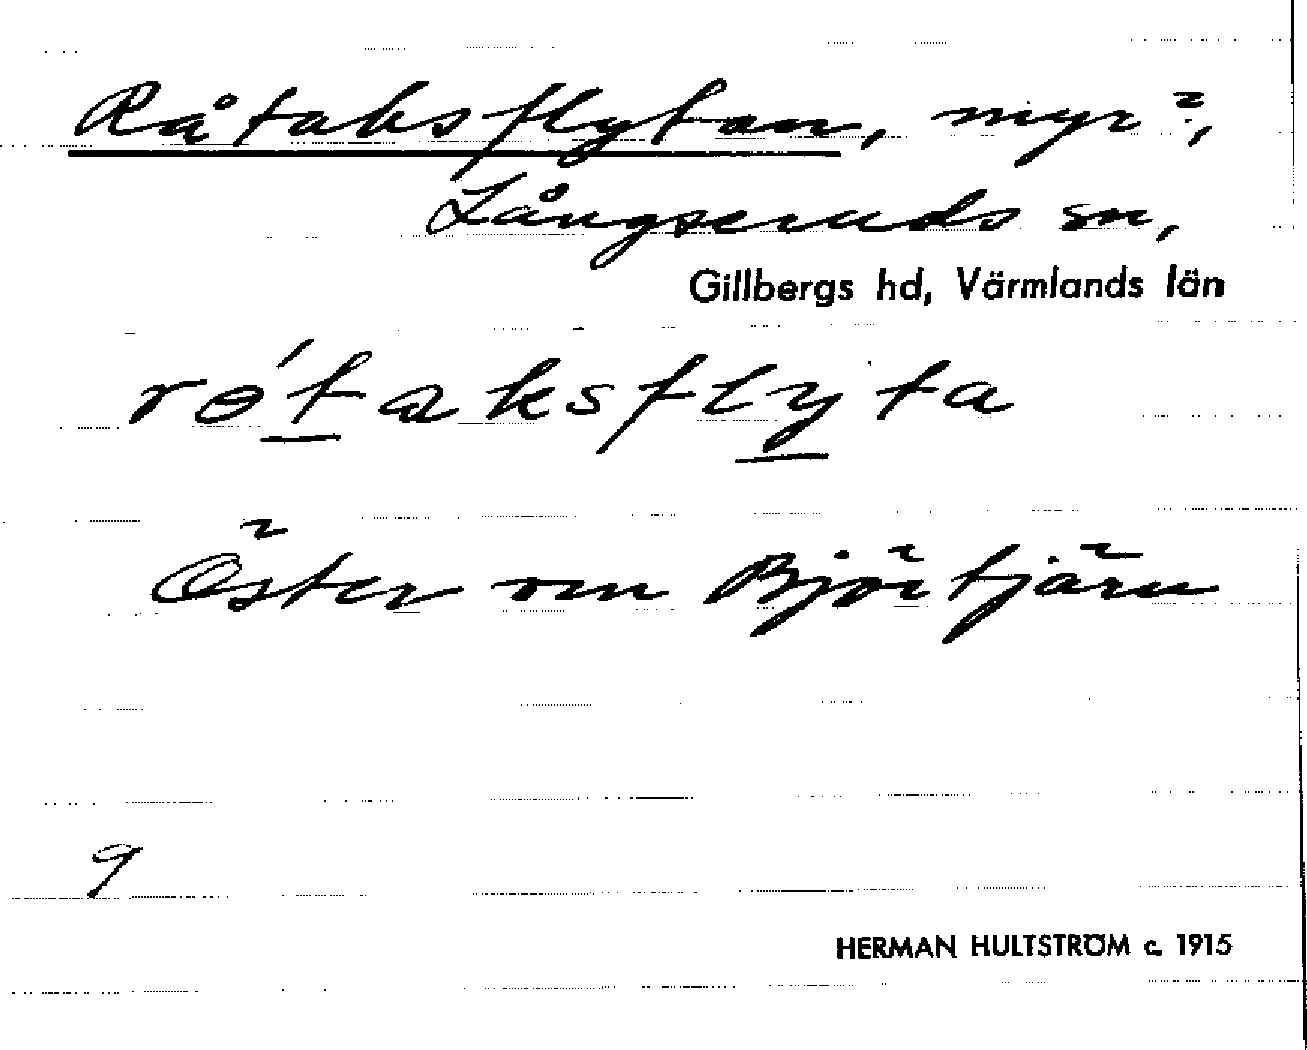 Råtaksflytan, myr?,
Långseruds sn,
Gillbergs hd, Värmlands län
rɵ́taksflyta
Öster om Björtjärn
9
HERMAN HULTSTRÖM c. 1915